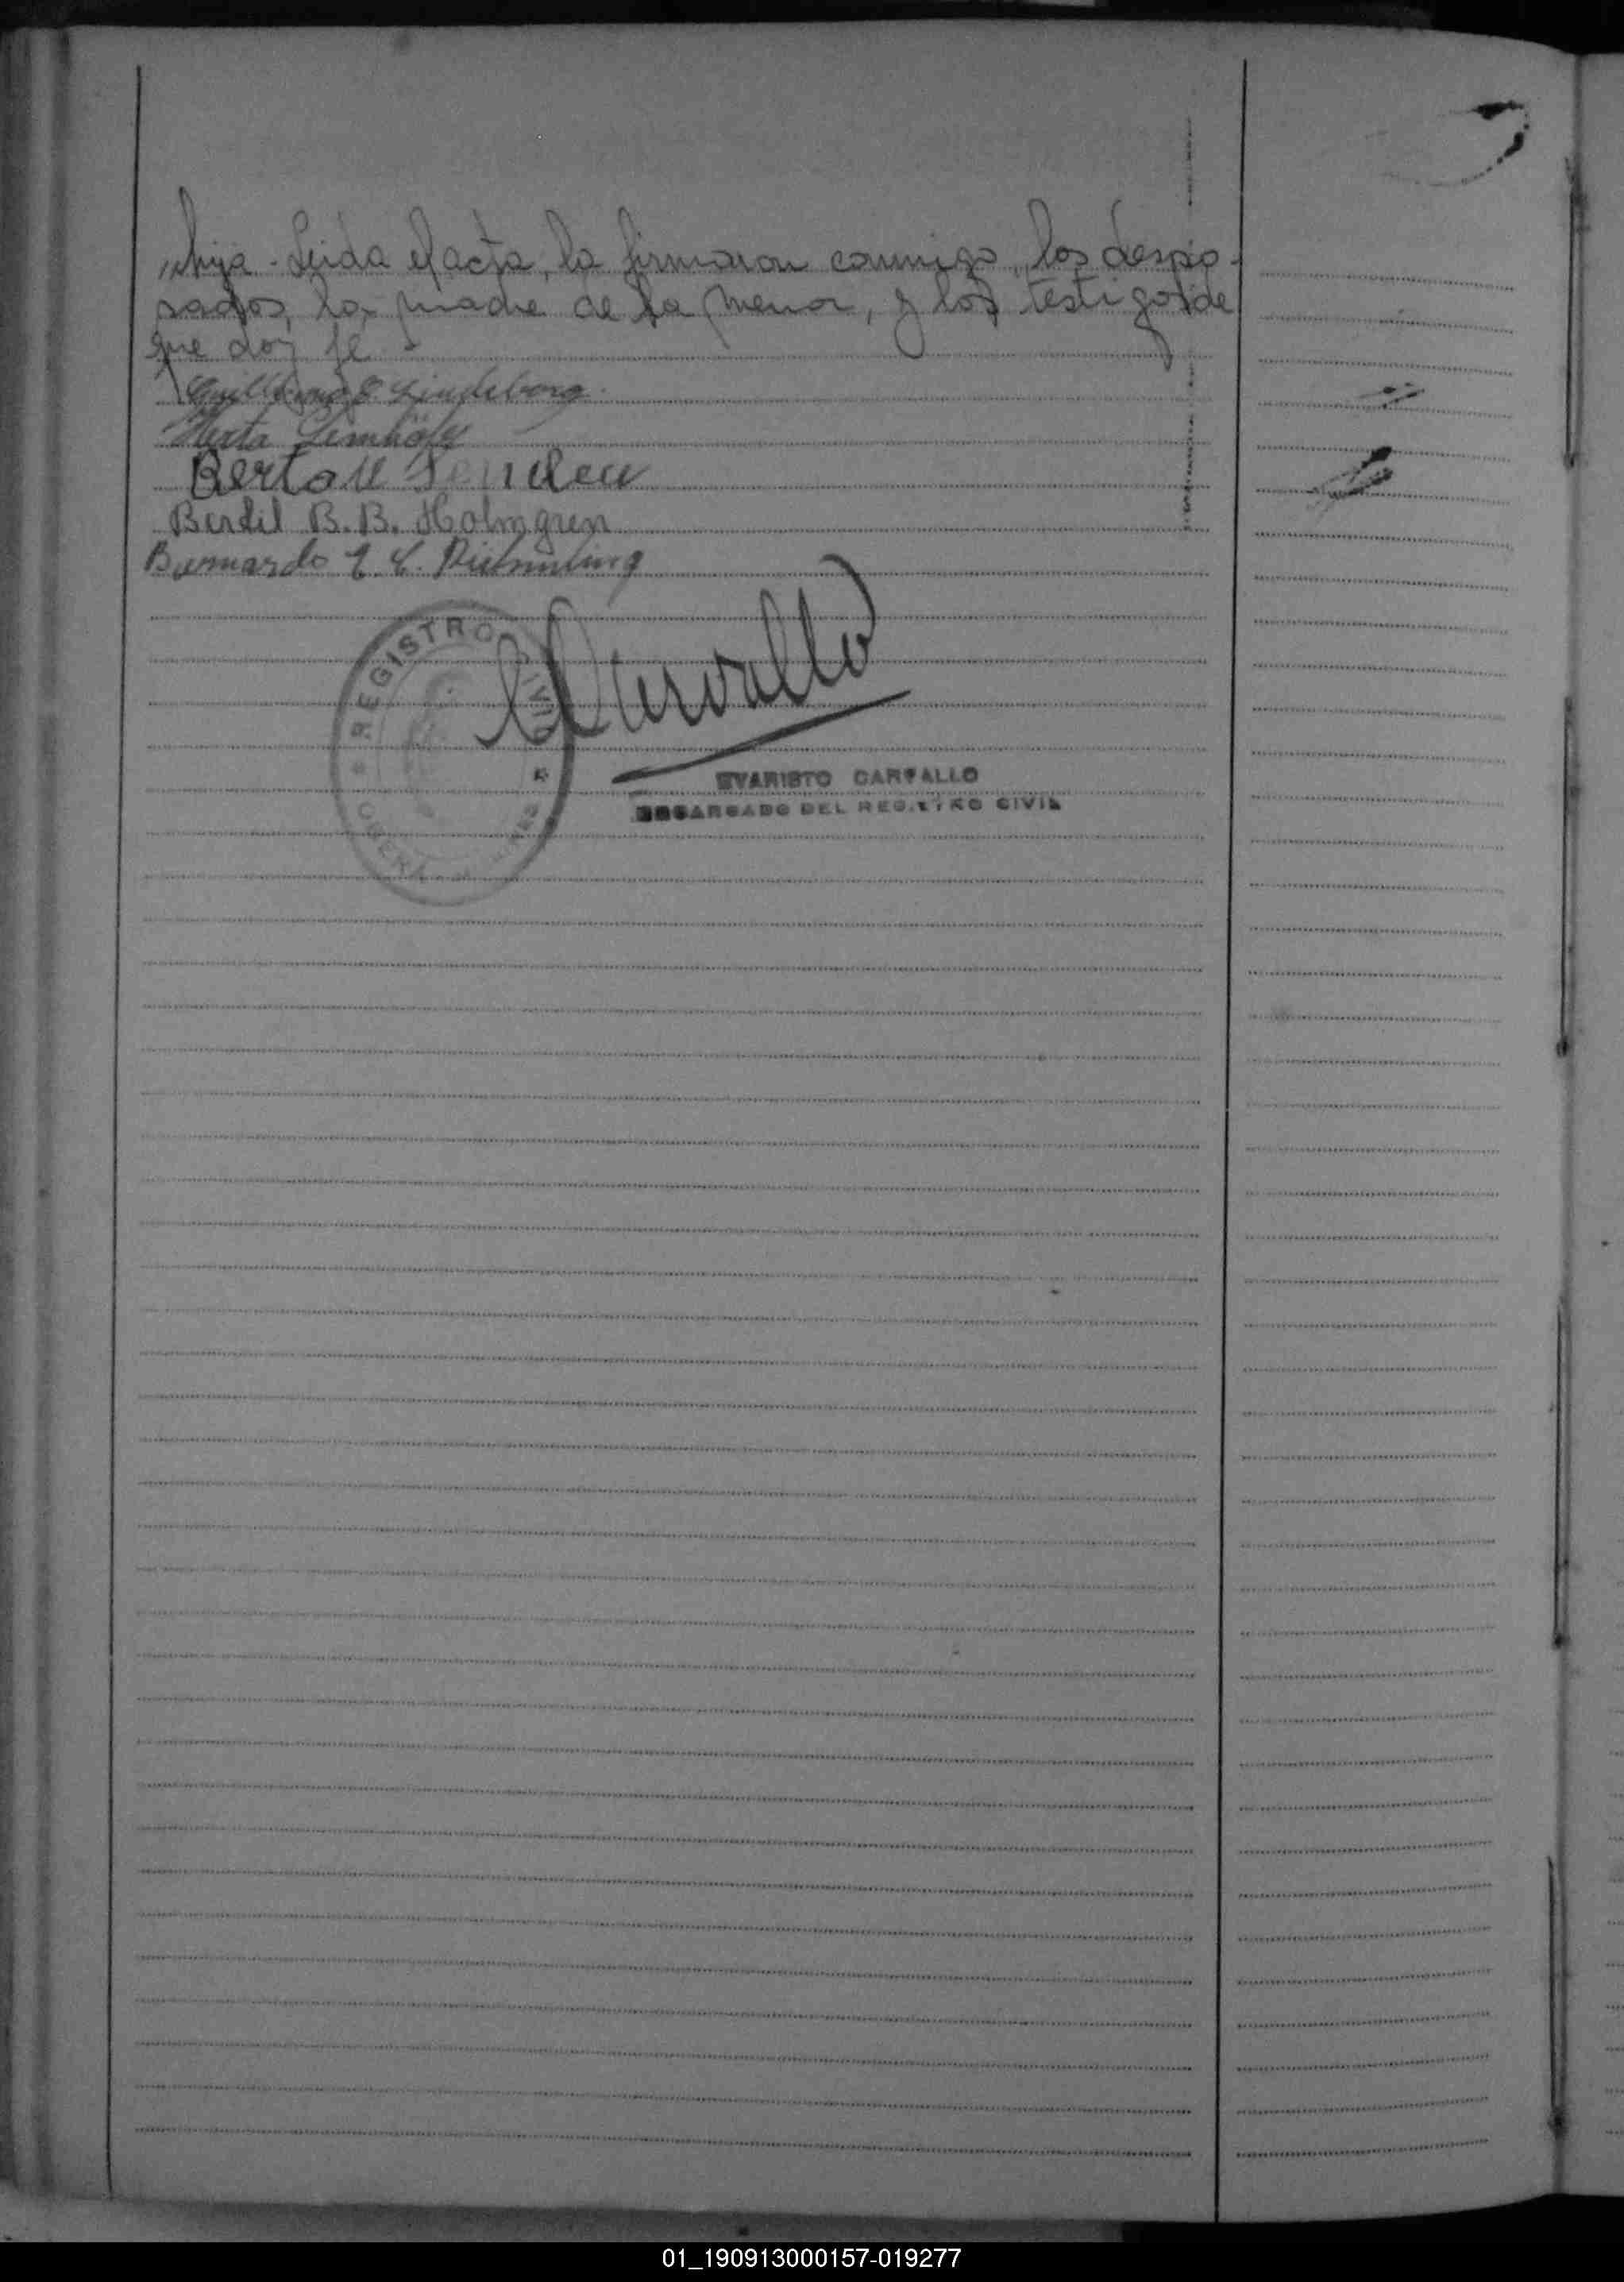 hija - Leida el acta, la firmaron conmigo, los despo-
sados, la madre de la menor, y los testigos de
que doy fe.
Guillermo E. Lindeborg.
Herta
Berta
Bertil B. B. Holmgren
Bernardo
REGISTRO CIVIL
OBERA
Carvallo
EVARISTO CARVALLO
ENCARGADO DEL REGISTRO CIVIL
01_190913000157-019277